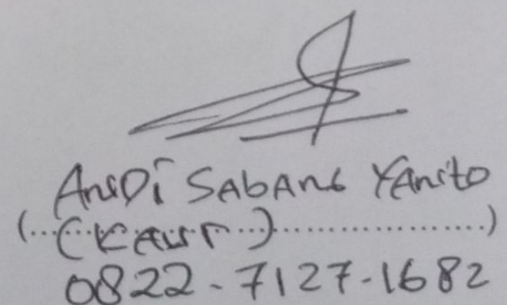 AnDi SAbANG YAnto
(KAUR)
0822-7127-1682